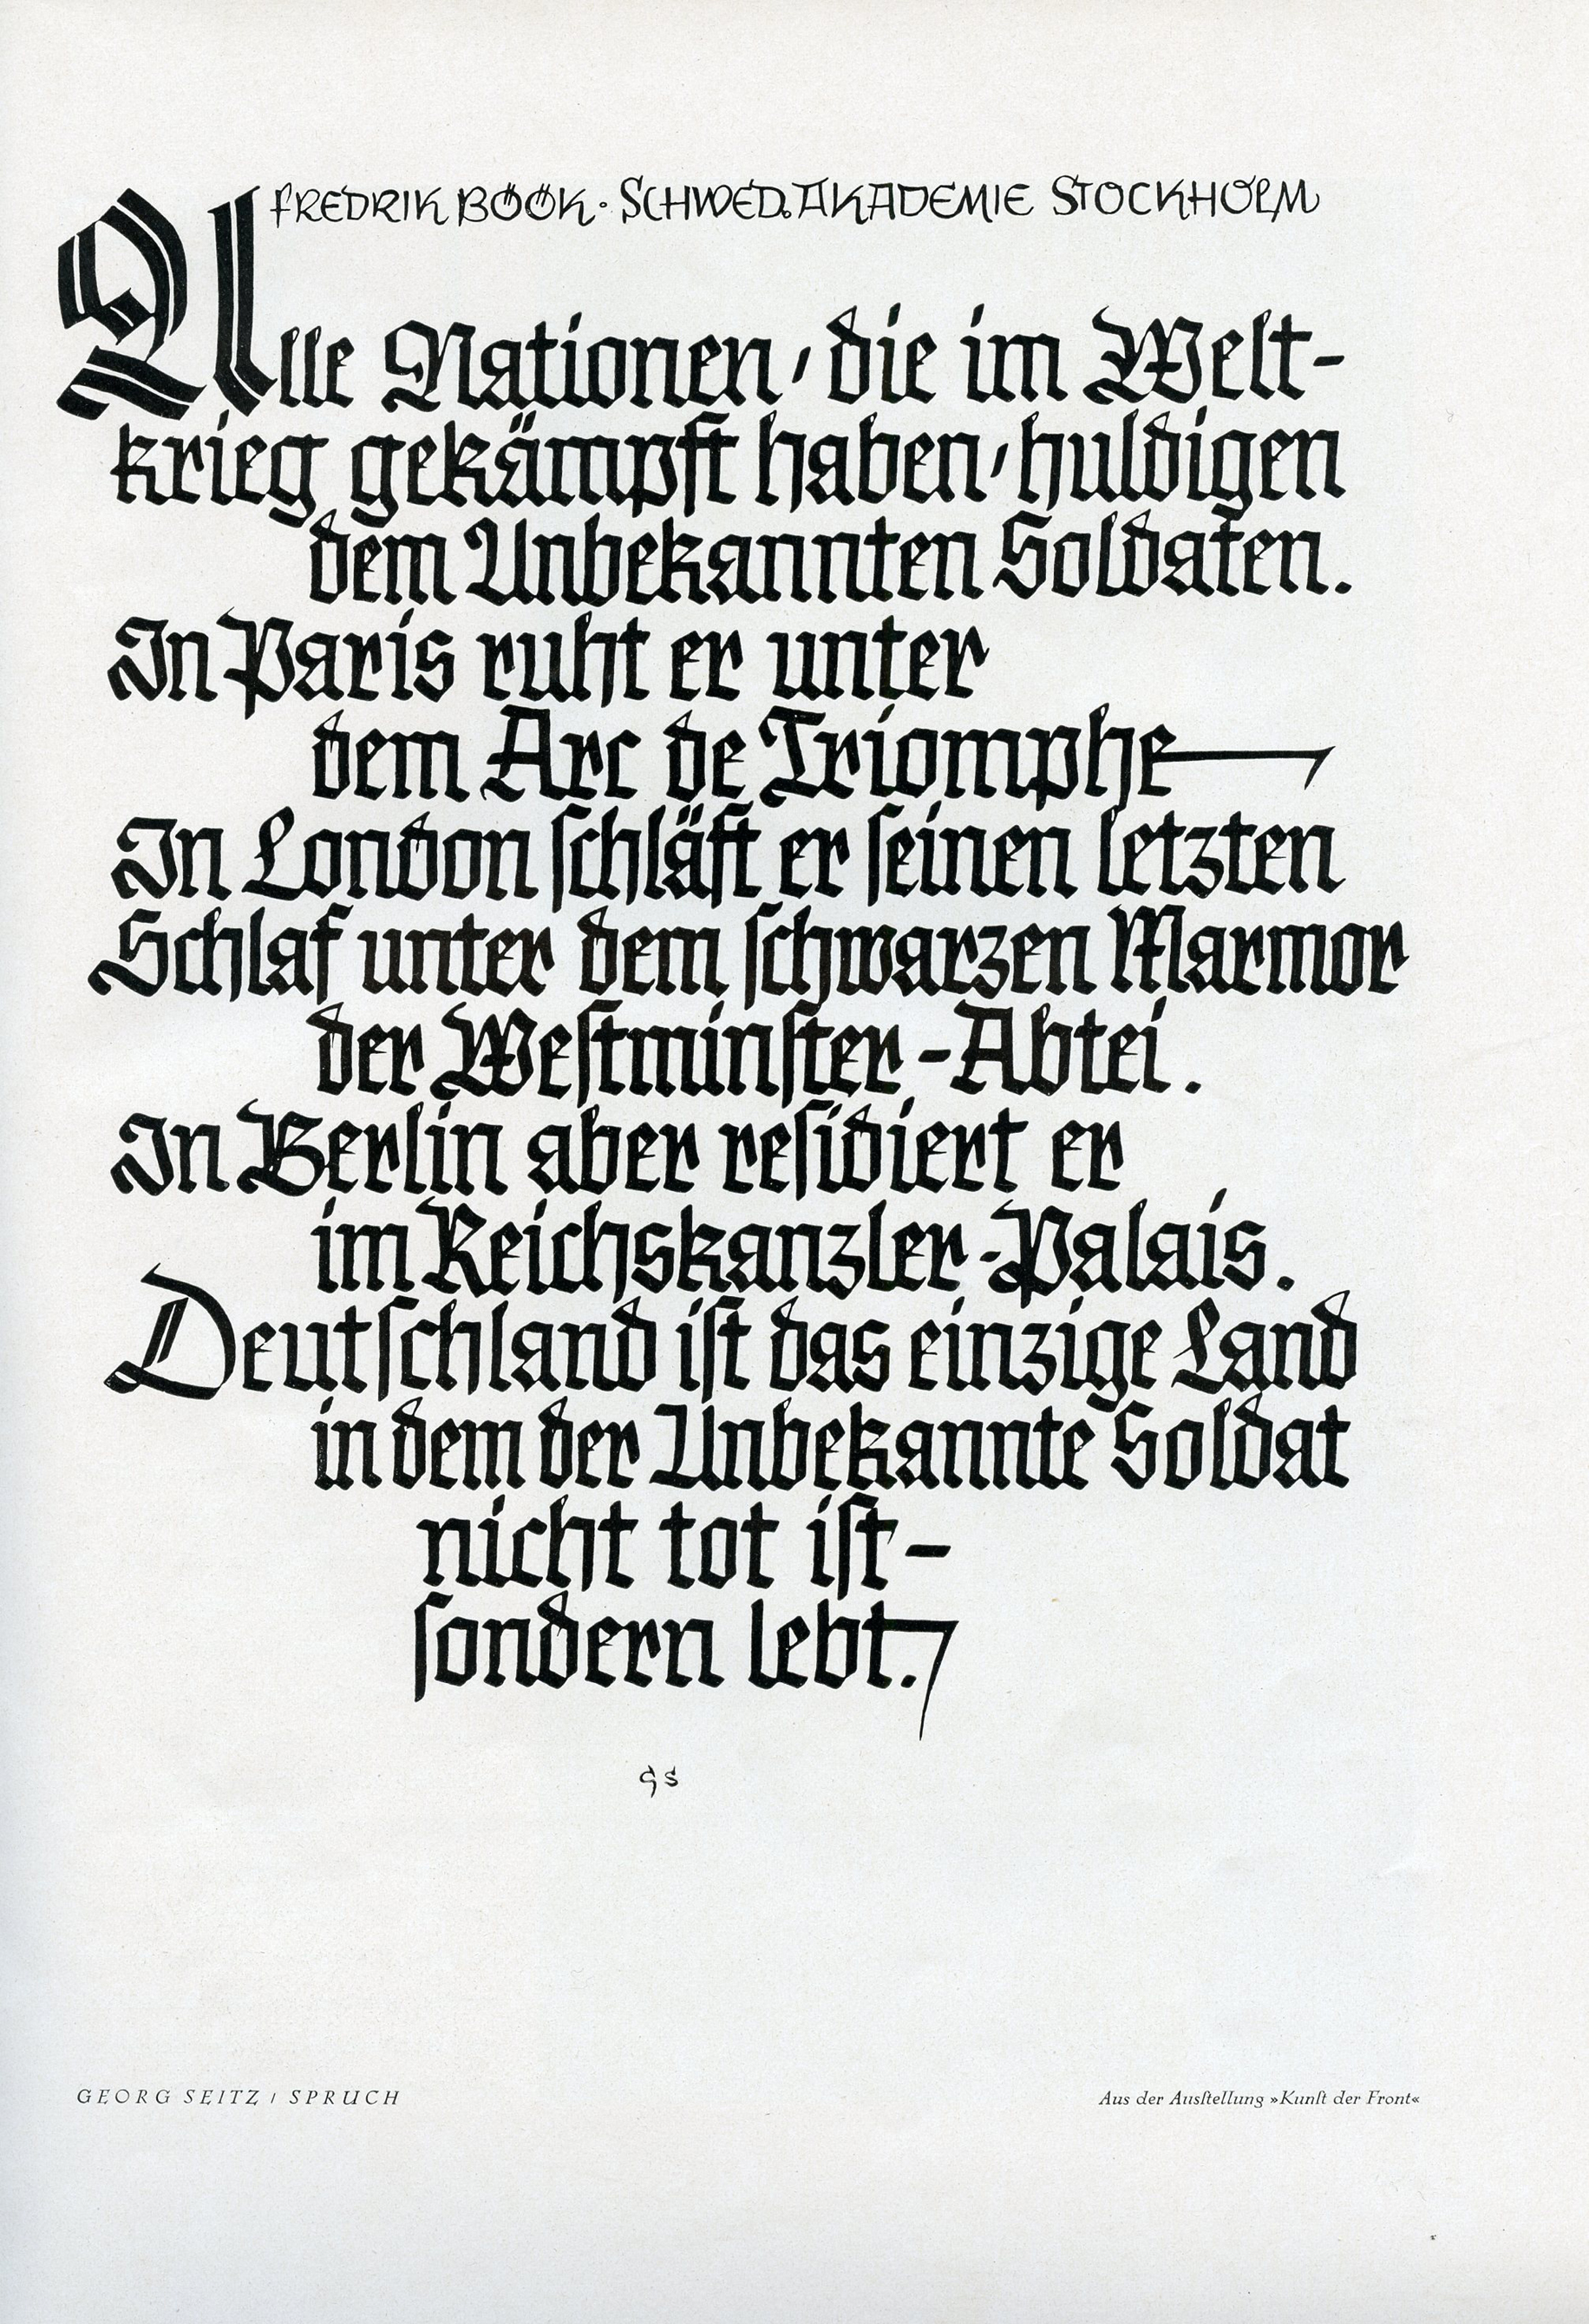 FREDRIK BÖÖK · SCHWED. AKADEMIE STOCKHOLM
Alle Nationen, die im Welt-
krieg gekämpft haben, huldigen
dem Unbekannten Soldaten.
In Paris ruht er unter
dem Arc de Triomphe—
In London ſchläft er ſeinen letzten
Schlaf unter dem ſchwarzen Marmor
der Weſtminſter-Abtei.
In Berlin aber reſidiert er
im Reichskanzler-Palais.
Deutſchland iſt das einzige Land
in dem der Unbekannte Soldat
nicht tot iſt-
ſondern lebt.
GS
GEORG SEITZ / SPRUCH
Aus der Ausſtellung »Kunſt der Front«